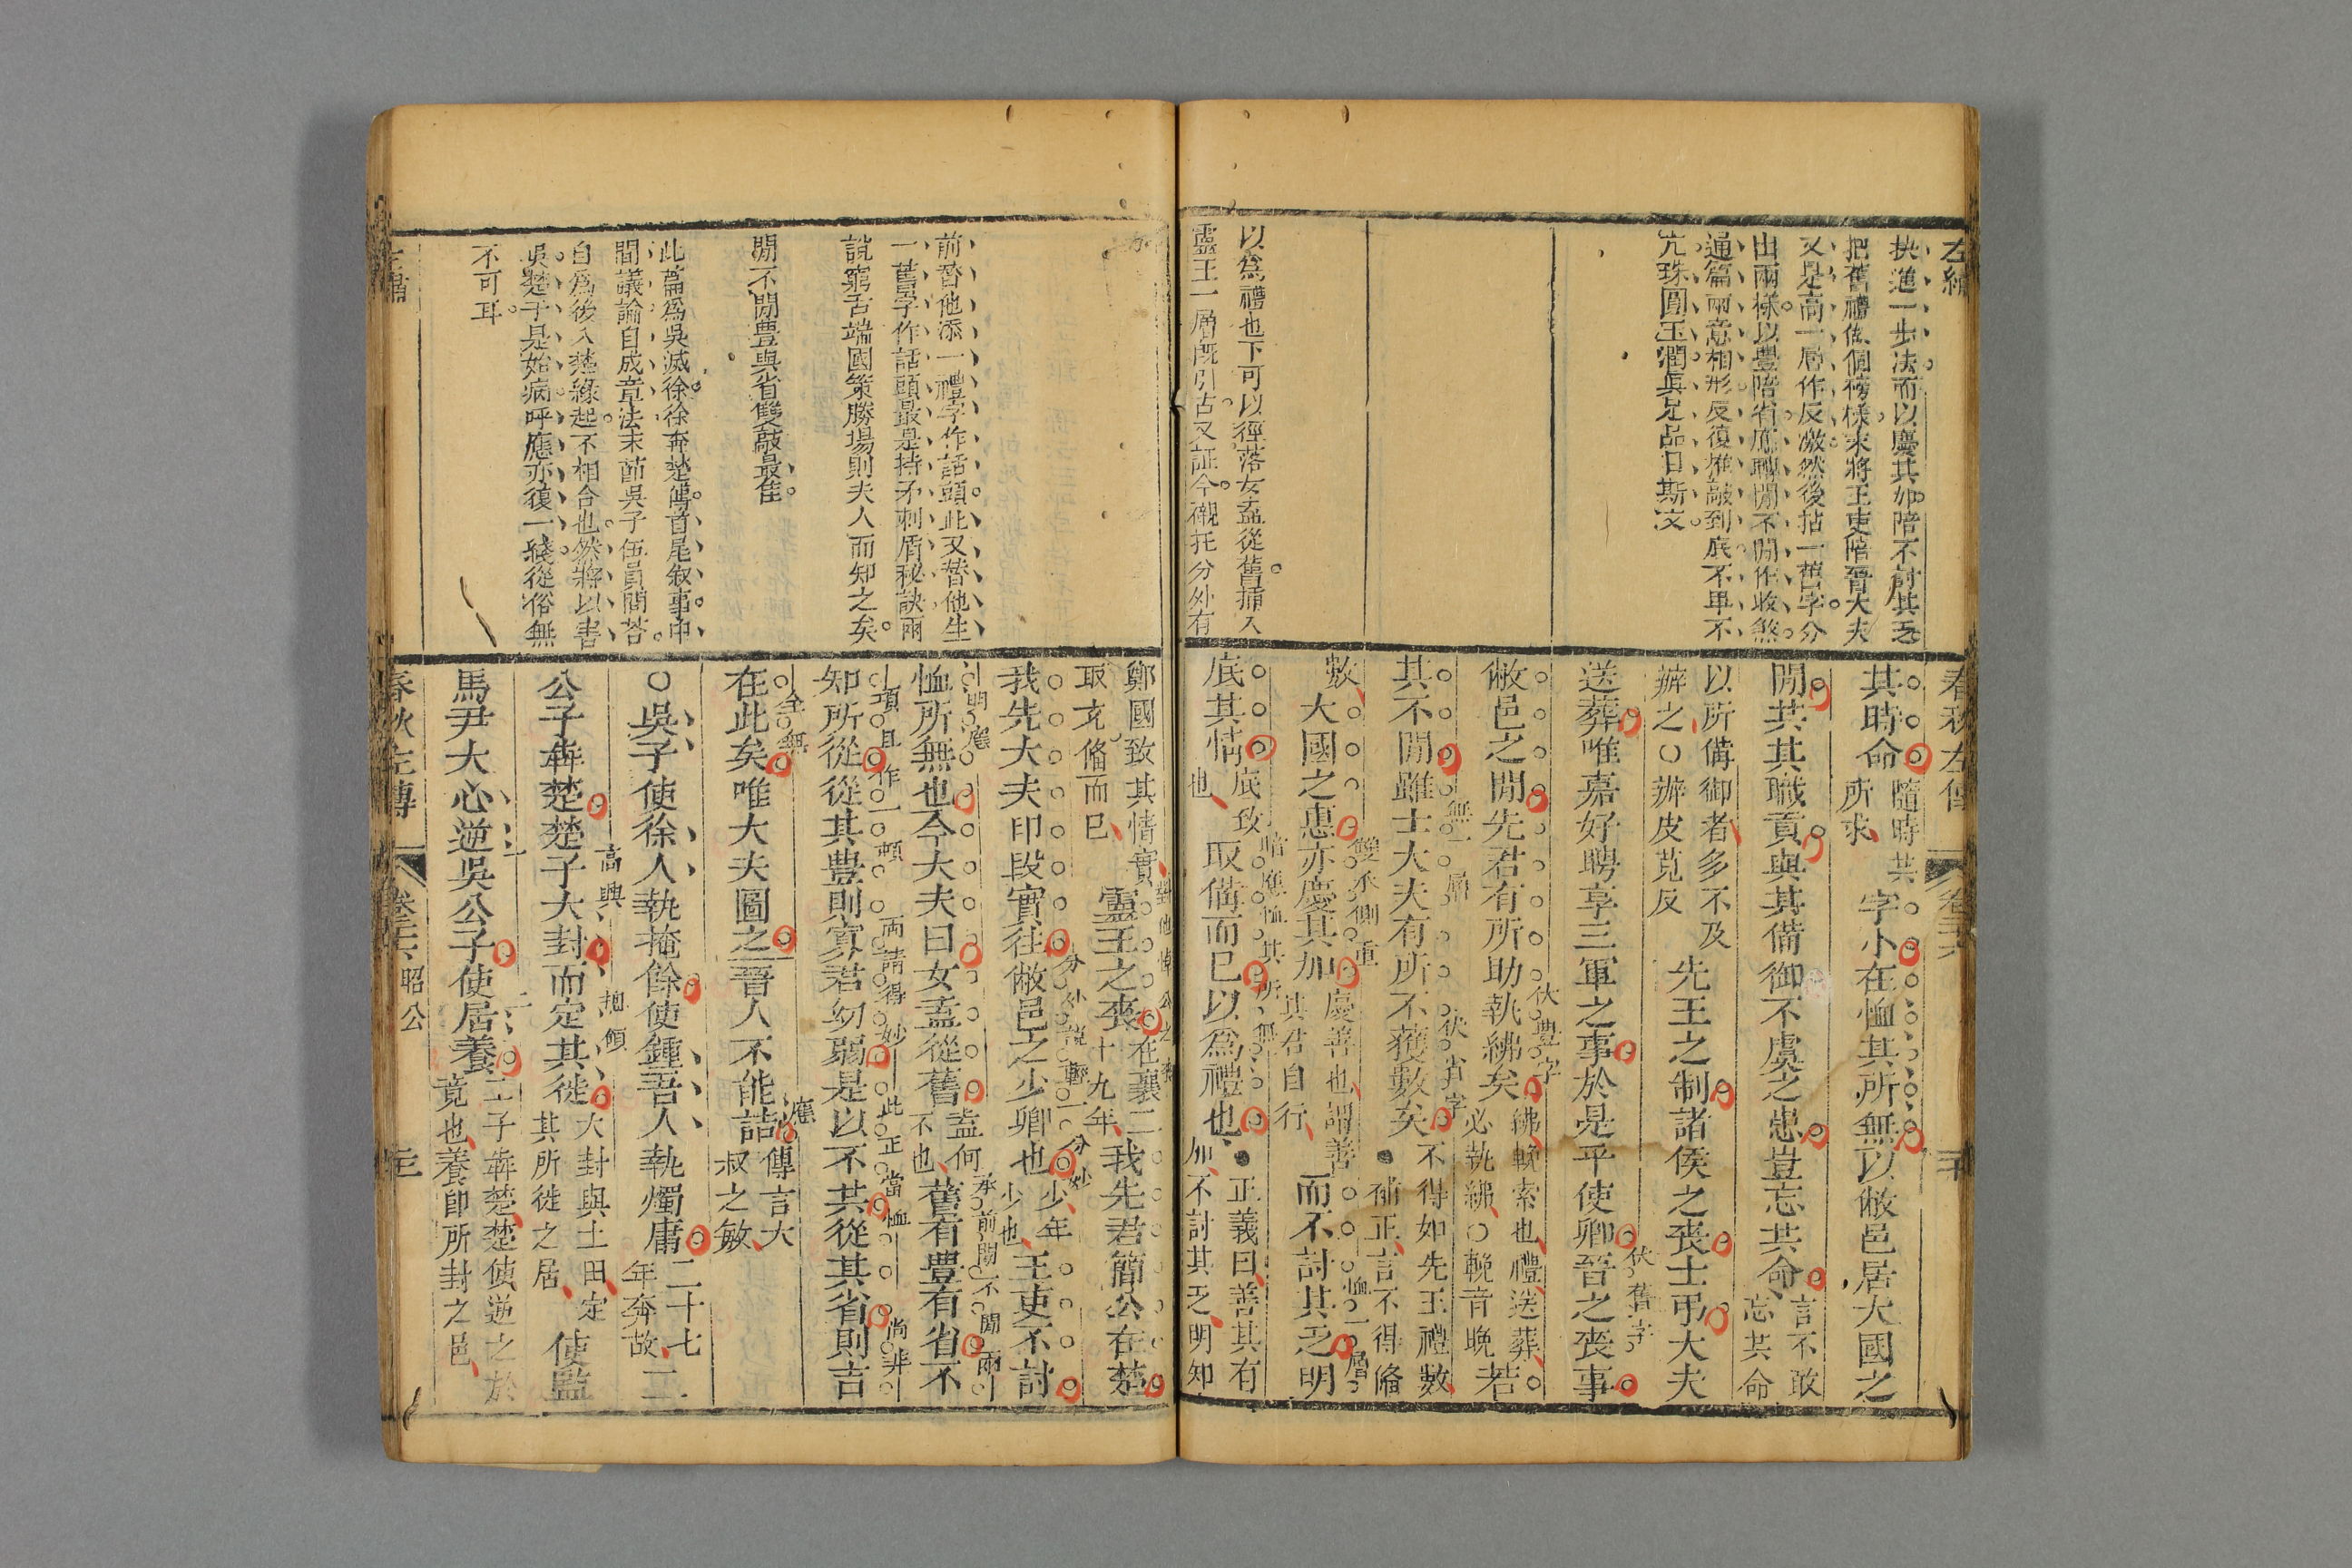 左繡
抉進一步法而以慶其加陪不討其乏
把舊禮做個榜樣來將王吏陪晉大夫
又是高一層作反激然後拈一舊字分
出兩樣以豐陪省應轉閒不閒作收煞
通篇兩意相形反復推敲到底不單不
亢珠圓玉潤眞足品目斯文
以爲禮也下可以徑落女盍從舊揷入
靈王一層旣引古又証今襯托分外有
春秋左傳
卷二十六
其時命隨時共所求字小在恤其所無以敝邑居大國之
閒共其職貢與其備御不虞之患豈忘共命言不敢忘共命
以所備御者多不及辦之○辦皮莧反先王之制諸侯之喪士弔大夫
送葬唯嘉好聘享三軍之事於是乎使卿晉之喪事
伏舊字
敝邑之閒先君有所助執紼矣紼輓索也禮送葬必執紼○輓音晚若
伏豊字
其不閒雖士大夫有所不獲數矣不得如先王禮數補正言不得俻
無一層
伏省字
數大國之惠亦慶其加慶善也謂善其君自行而不討其乏明
雙承側重
恤一層
底其情底致也取備而已以爲禮也正義曰善其有加不討其乏明知
暗應恤其所無
前替他添一禮字作話頭此又替他生
一舊字作話頭最是持矛刺盾秘訣兩
說窮舌端國策勝塲則夫人而知之矣
閒不閒豊與省雙敲最佳
此篇爲吳滅徐徐奔楚傳首尾叙事中
間議論自成章法末節吳子伍員問荅
自爲後入楚緣起不相合也然將以害
吳楚子是始病呼應亦復一綫從俗無
不可耳
鄭國致其情實取充俻而已靈王之喪在襄二十九年我先君簡公在楚
我先大夫印段實往敝邑之少卿也少年少也王吏不討
恤所無也今大夫曰女盍從舊盍何不也舊有豊有省不
明應
承前閒不閒兩
知所從從其豊則寡君幼弱是以不共從其省則吉
項且作一頓
兩請得妙
此正當恤
尚非
在此矣唯大夫圖之晉人不能詰傳言大叔之敏
全無
應
○吳子使徐人執掩餘使鍾吾人執燭庸二十七年奔故二
公子奔楚楚子大封而定其徙大封與土田定其所徙之居使監
高興
馬尹大心逆吳公子使居養二子奔楚楚使逆之於竟也養卽所封之邑
左繡
春秋左傳
卷二十六昭公